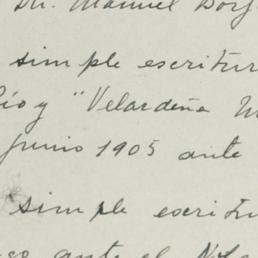 Dr. Manuel
simple escritur
y "Velardeña
Junio 1905 ante
simple escritu
ante el